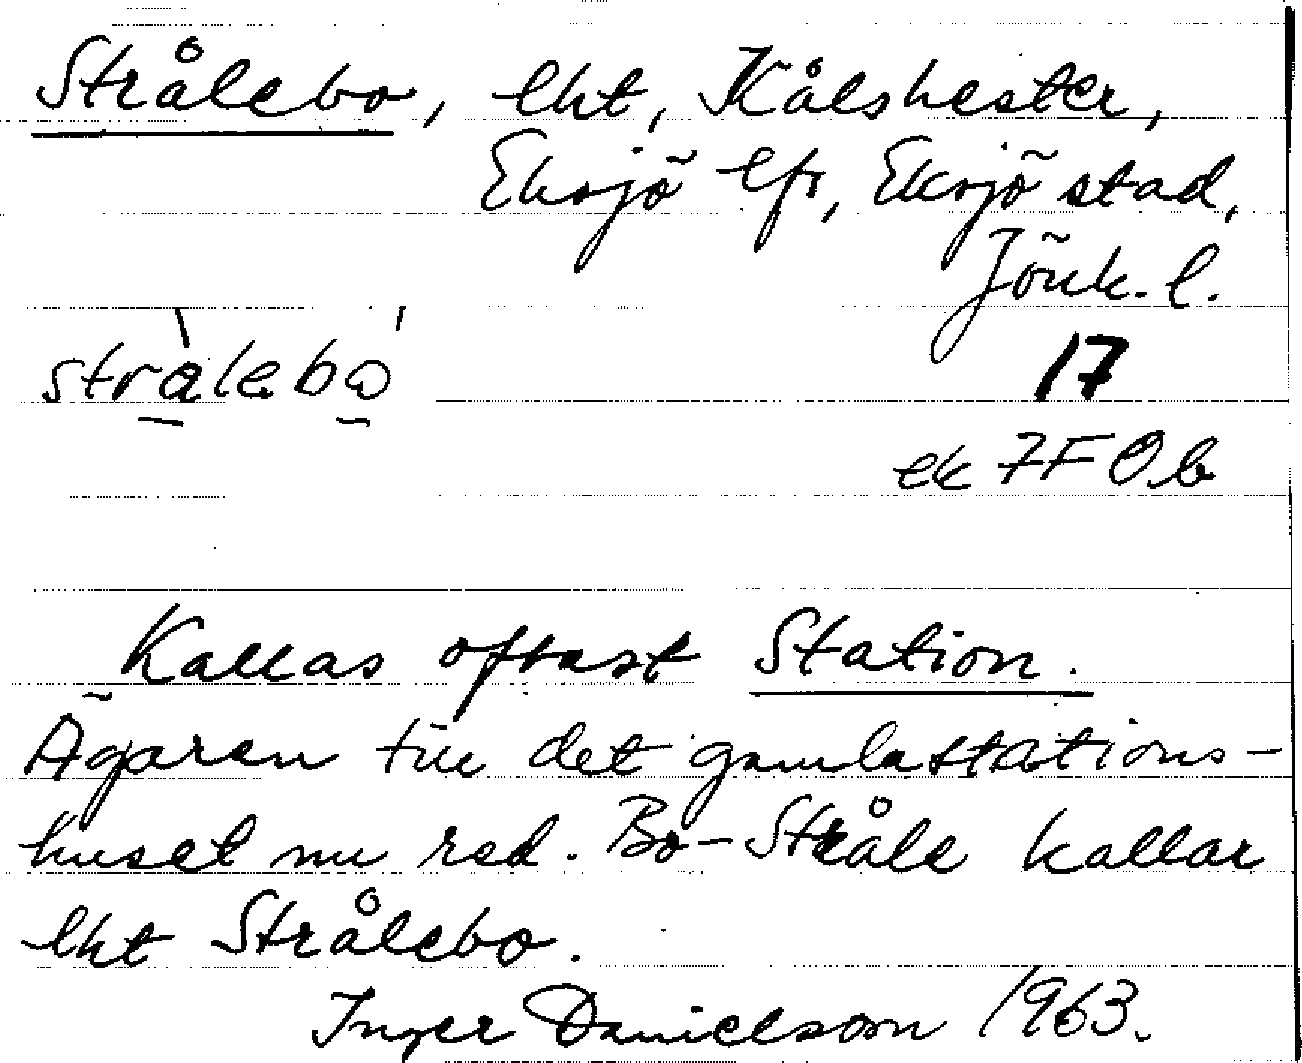 Strålebo, lht, Kålshester,
Eksjö lfs, Eksjö stad,
Jönk. l.
strålebo
17
ek 7F 0b
Kallas oftast Station.
Ägaren till det gamla stations-
huset nu red. Bo-Stråle kallar
lht Strålebo.
Inger Danielsson 1963.